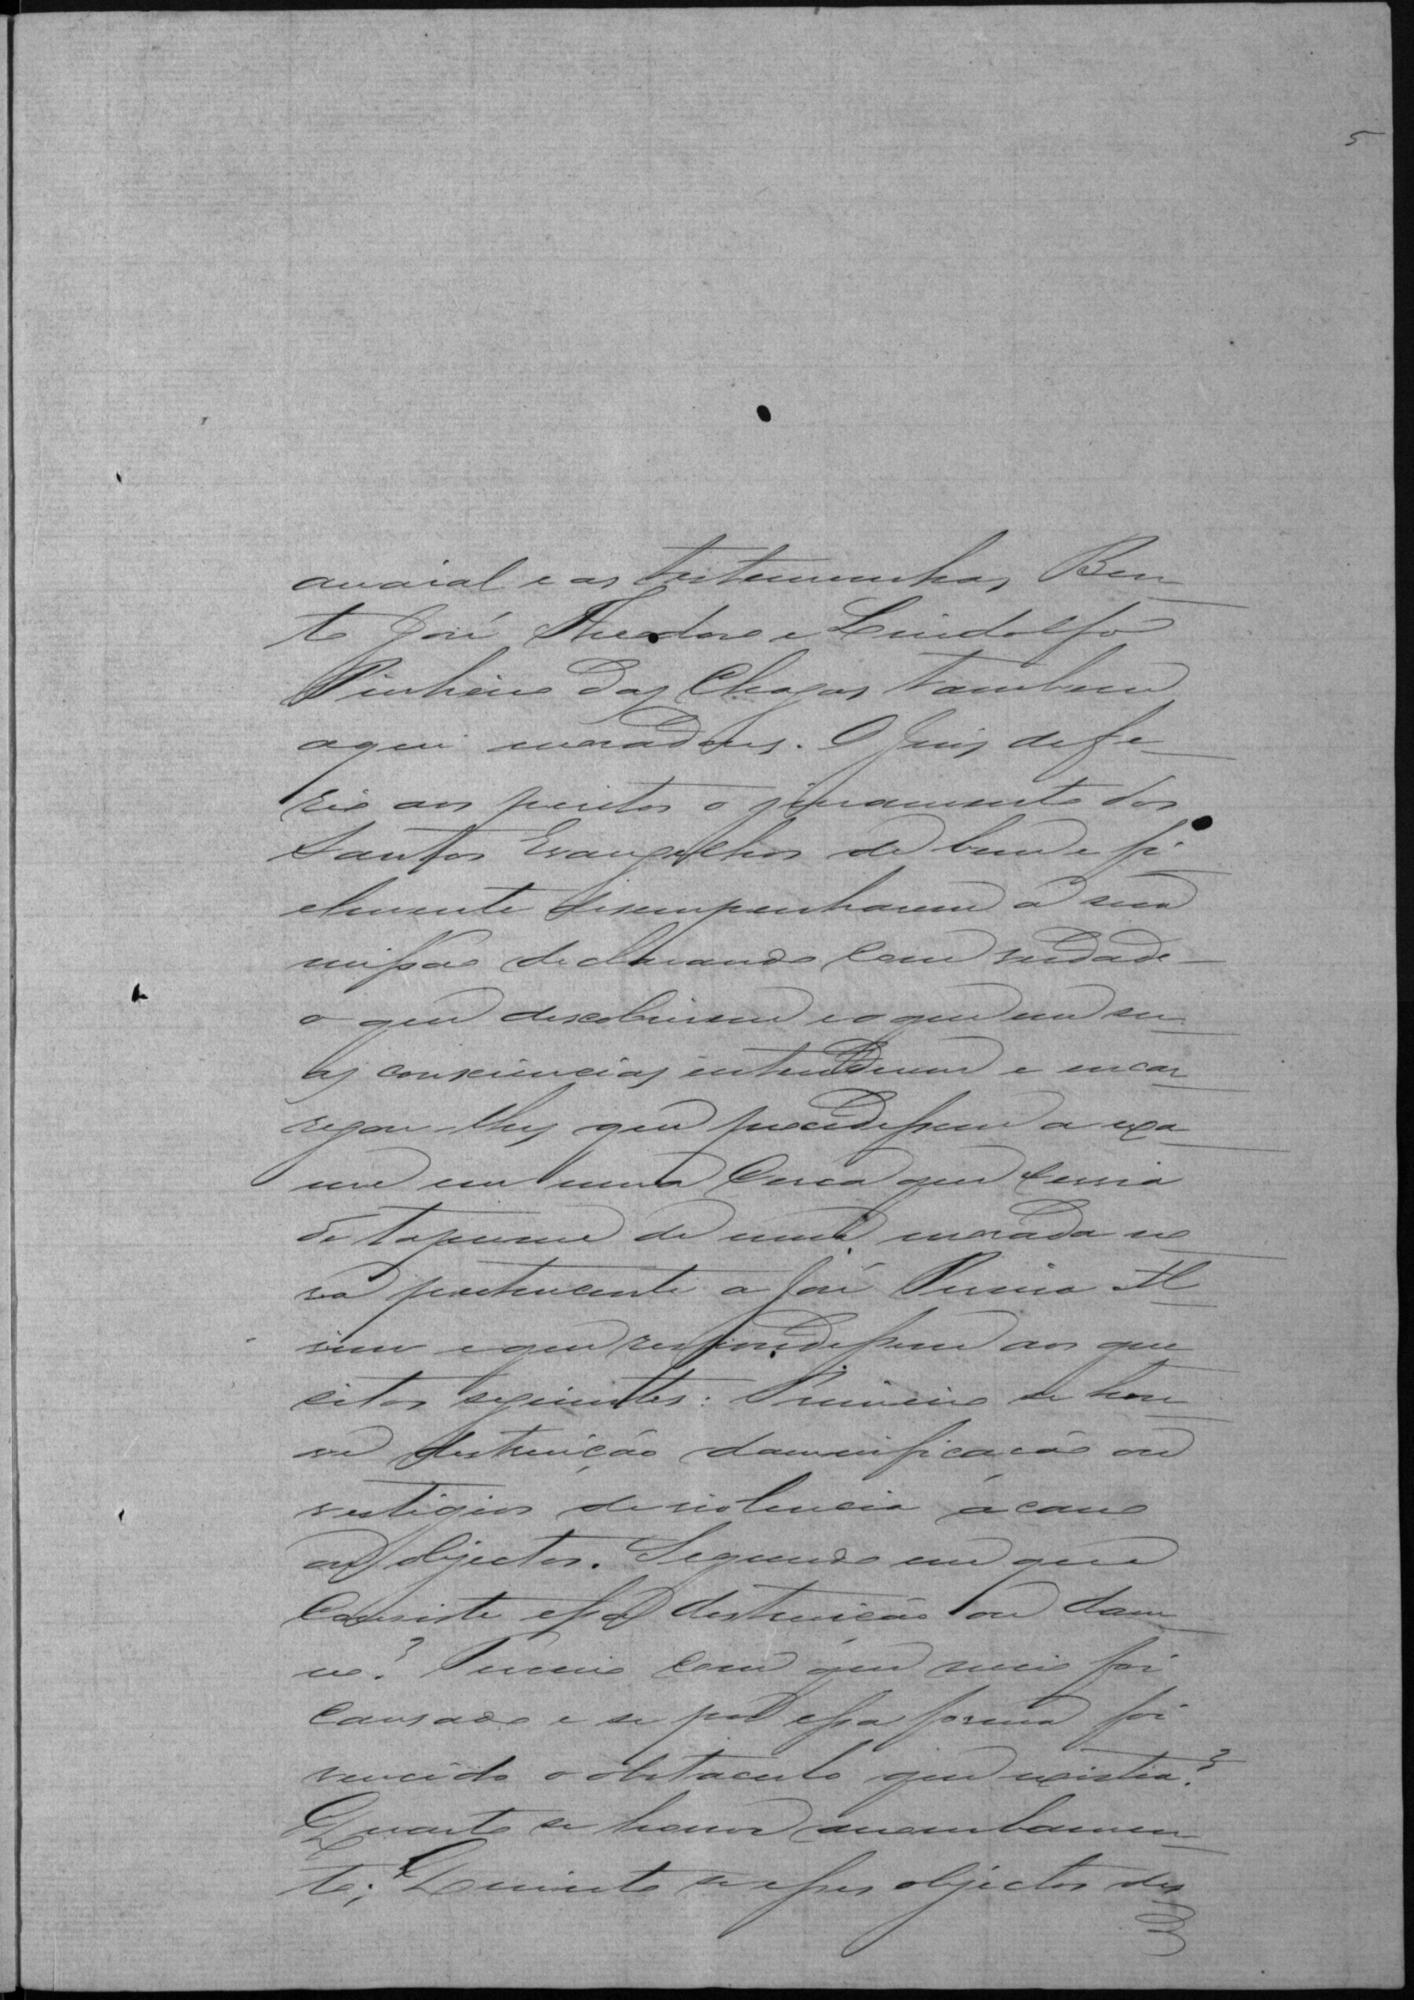 5
arraial e as testemunhas, Ben-
to José Theodoro e Lindolfo
Pinheiro das Chagas tambem
aqui moradores. O Juis defe-
rio aos peritos o juramento dos
Santos Evangelhos de bem e fi-
elmente desempenharem a sua
missão declarando com verdade
o que descobrirem e o que em su-
as consciencias entenderem e encar-
regou-lhes que procedessem a exa-
me em uma cerca que servia
de tapume de uma morada no-
va pertencente a José Pereira Al-
vim e que respondessem aos que-
sitos seguintes: Primeiro se hou-
ve destruição damnificação ou
vestigios de violencia á cousa
ou objectos. Segundo em que
consiste essa destruição ou dam-
no? Terceiro com que meio foi
causado e se por essa forma foi
vencido o obstaculo que existia?
Quarto se houve arrombamen-
to; Quinto se esses objectos des